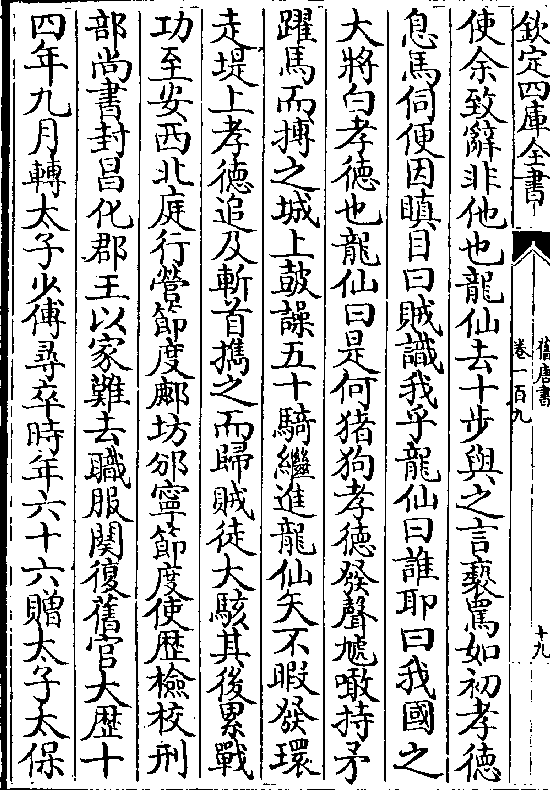 欽定四庫全書
舊唐書
卷一百九
十九
使余致辭非他也龍仙去十步與之言褻罵如初孝德
息馬伺便因瞋目曰賊識我乎龍仙曰誰耶曰我國之
大將白孝德也龍仙曰是何猪狗孝德發聲虓噉持矛
躍馬而搏之城上鼓譟五十騎繼進龍仙矢不暇發環
走堤上孝德追及斬首擕之而歸賊徒大駭其後累戰
功至安西北庭行營節度鄜坊邠寧節度使歴檢校刑
部尚書封昌化郡王以家難去職服闋復舊官大歴十
四年九月轉太子少傅尋卒時年六十六贈太子太保